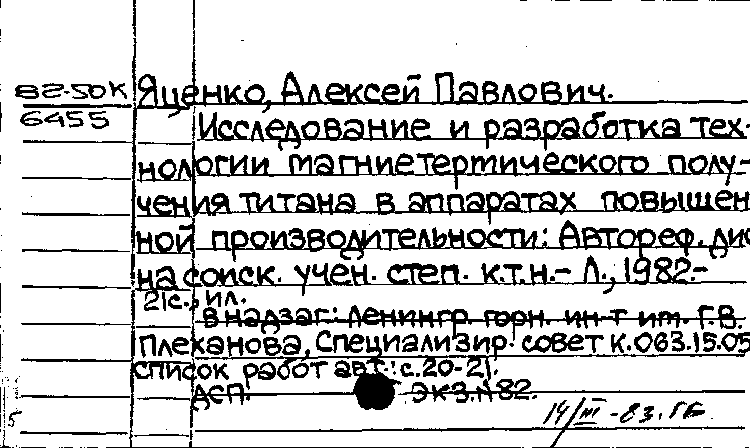 82-50К Яценко, Алексей Павлович.
6455 Исследование и разработка тех-
нологии магниетермического полу-
чения титана в аппаратах повышен
ной производительности: Автореф. дис
на соиск. учен. степ. к.т.н.- Л., 1982.-
21с., ил.
В надзаг: Ленингр. горн. ин-т им. Г.В.
Плеханова, Специализир. совет К.063.15.05
Список работ авт.: с.20-21.
ДСП. Экз.N82.
14/III -83.
5